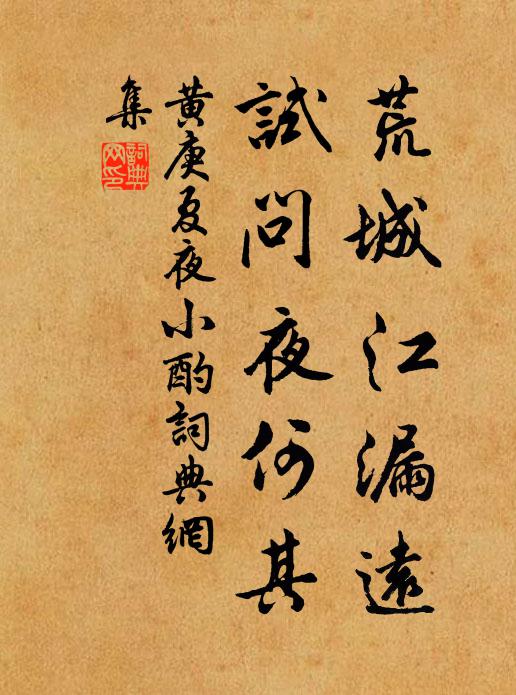 荒城江漏遠
試問夜何其
黃庚夏夜小酌詞典網
集
詞典
网印